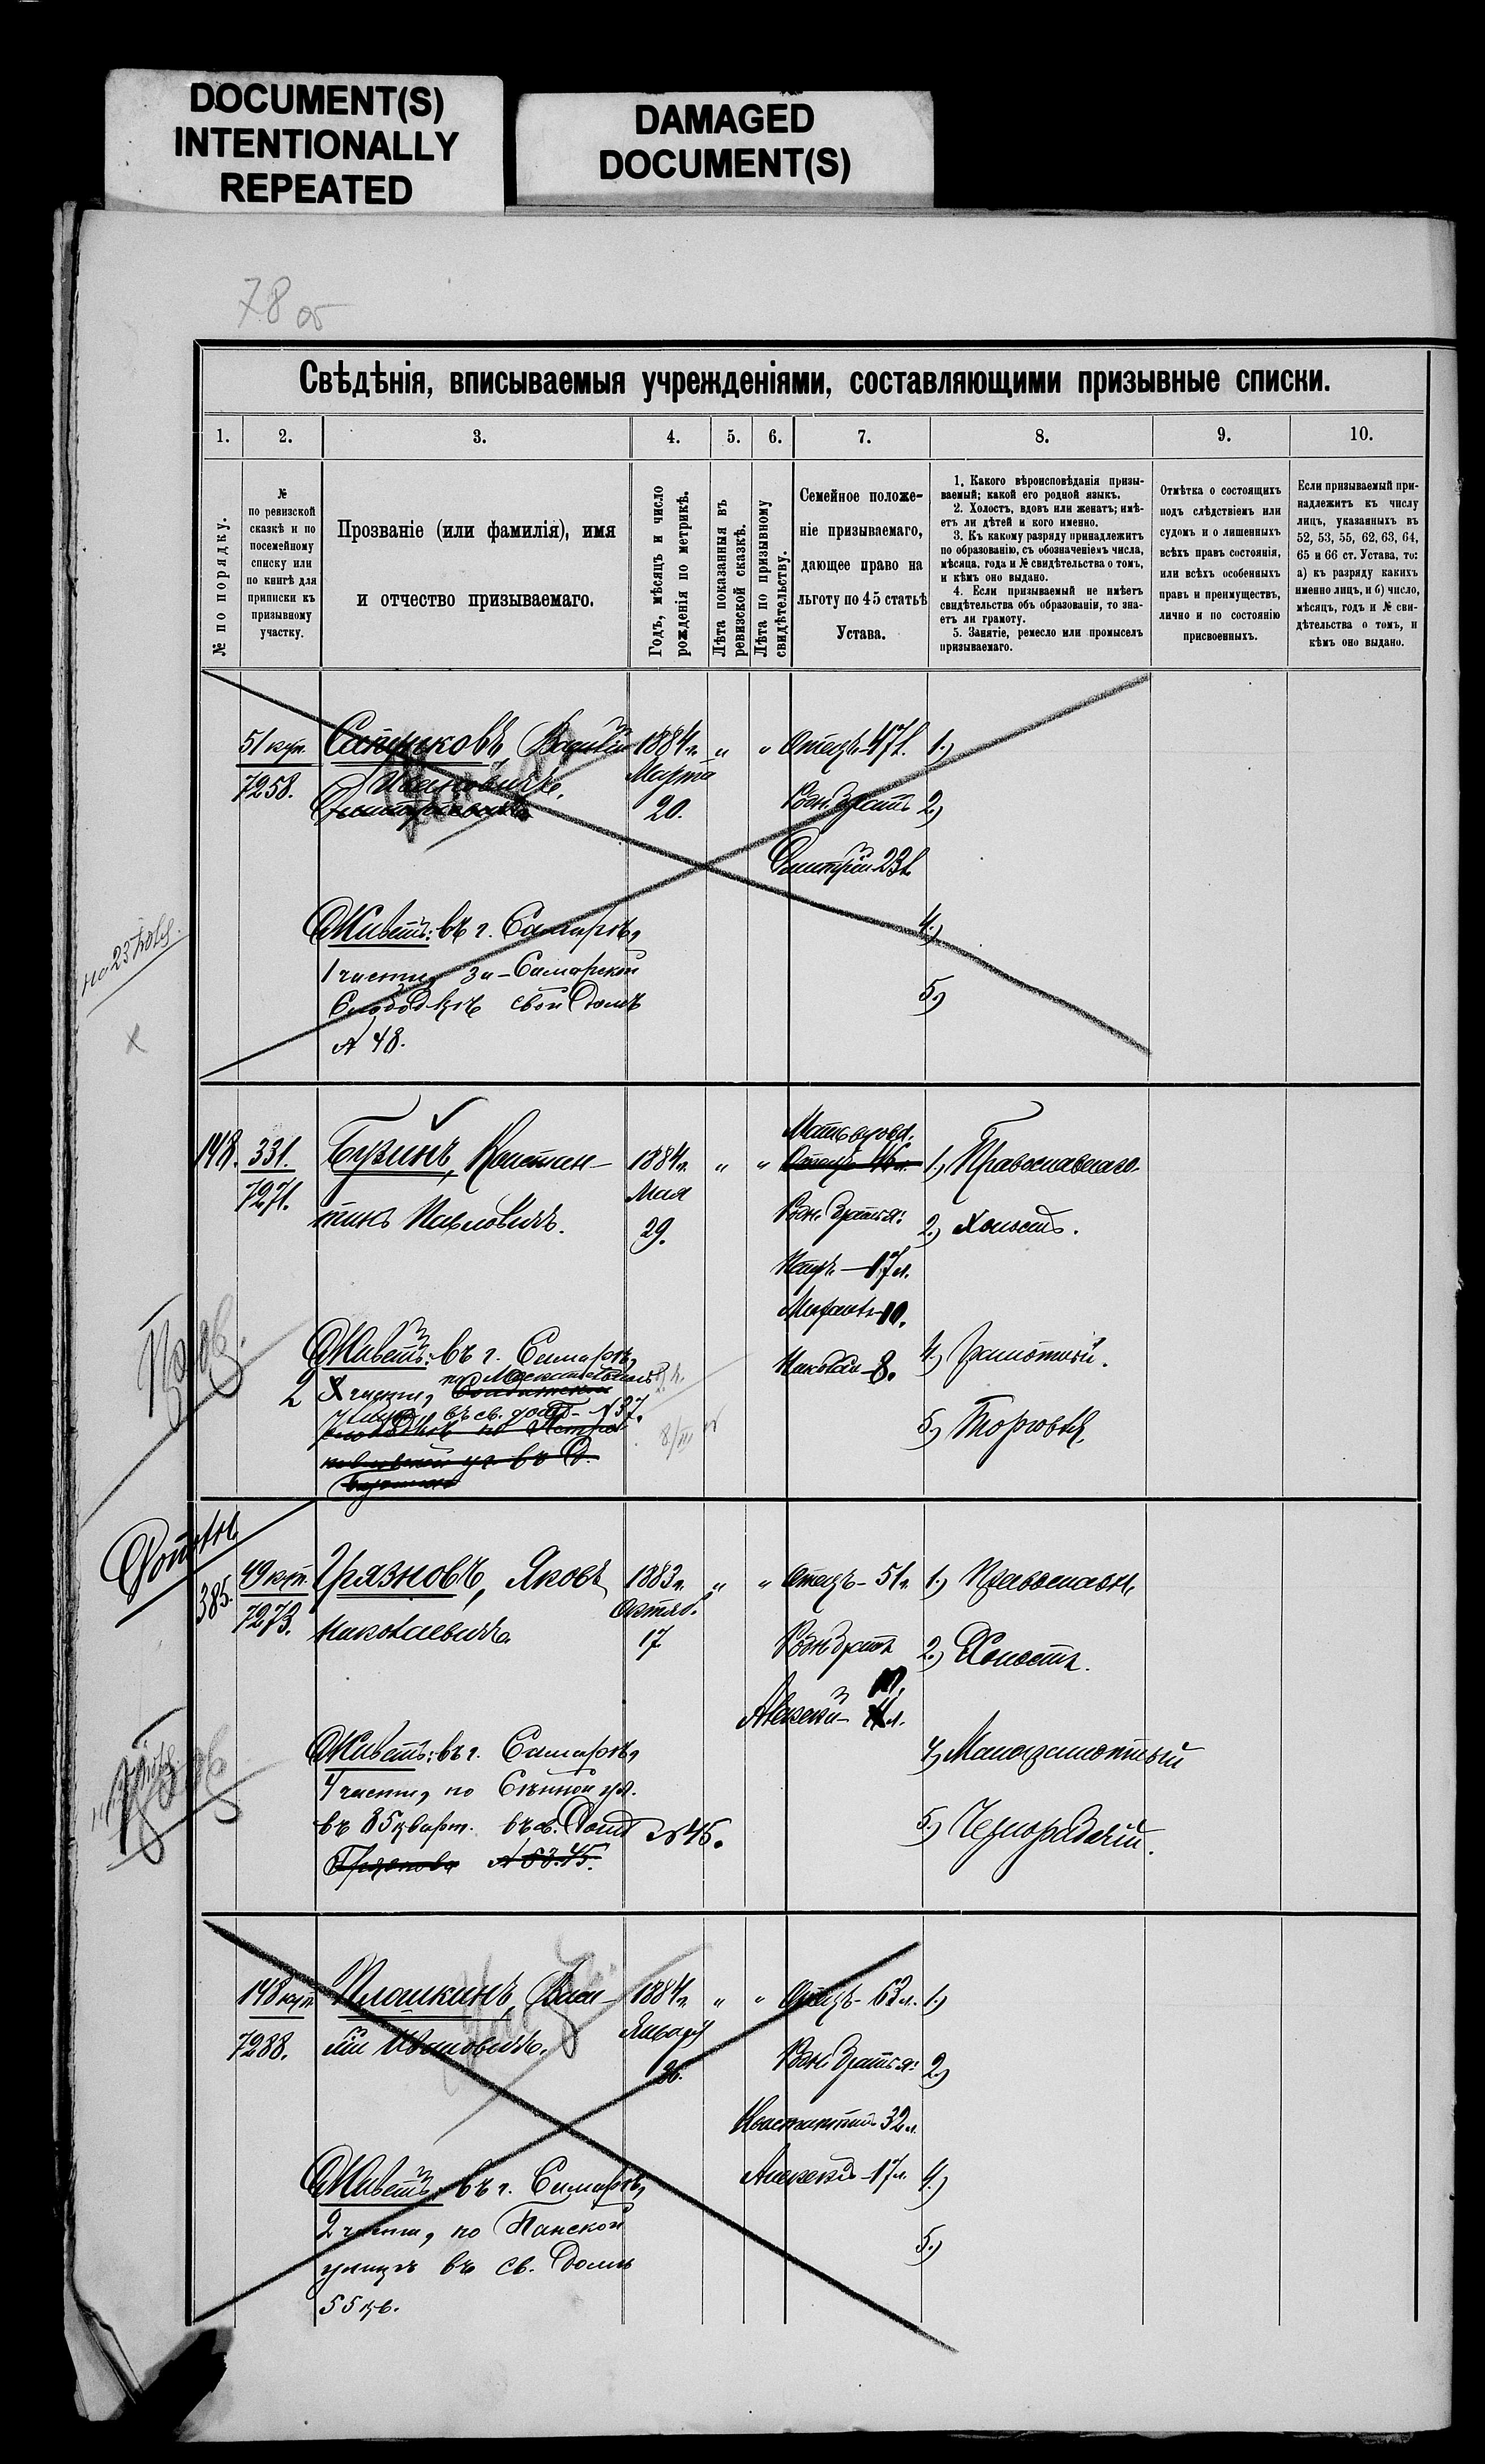 DOCUMENT(S)
INTENTIONALLY
REPEATED
DAMAGED
DOCUMENT(S)
78 об
Свѣдѣнія, вписываемыя учрежденіями, составляющими призывные списки.
1. 2. 3. 4. 5. 6. 7. 8. 9. 10.
№ по порядку.
№
по ревизской
сказкѣ и по
посемейному
списку или
по книгѣ для
приписки къ
призывному
участку.
Прозваніе (или фамилія), имя
и отчество призываемаго.
Годъ, мѣсяцъ и число
рожденія по метрикѣ.
Лѣта показанныя въ
ревизской сказкѣ.
Лѣта по призывному
свидѣтельству.
Семейное положе-
ніе призываемаго,
дающее право на
льготу по 45 статьѣ
Устава.
1. Какого вѣроисповѣданія призы-
ваемый; какой его родной языкъ.
2. Холостъ, вдовъ или женатъ; имѣ-
етъ ли дѣтей и кого именно.
3. Къ какому разряду принадлежитъ
по образованію, съ обозначеніемъ числа,
мѣсяца, года и № свидѣтельства о томъ,
и кѣмъ оно выдано.
4. Если призываемый не имѣетъ
свидѣтельства объ образованіи, то зна-
етъ ли грамоту.
5. Занятіе, ремесло или промыселъ
призываемаго.
Отмѣтка о состоящихъ
подъ слѣдствіемъ или
судомъ и о лишенныхъ
всѣхъ правъ состоянія,
или всѣхъ особенныхъ
правъ и преимуществъ,
лично и по состоянію
присвоенныхъ.
Если призываемый при-
надлежитъ къ числу
лицъ, указанныхъ въ
52, 53, 55, 62, 63, 64,
65 и 66 ст. Устава, то:
а) къ разряду какихъ
именно лицъ, и б) число,
мѣсяцъ, годъ и № сви-
дѣтельства о томъ, и
кѣмъ оно выдано.
51 куп. Василій 1884 г. " " Отецъ 47 л. 1.)
7258. Ивановичъ. Марта
20. Родн. братъ 2.)
Дмитрій 23 л.
Живетъ: въ г. Самарѣ, 4.)
1 части, за-Самарской
Слободкѣ свой домъ 5.)
№ 48.
Мать вдова.
1418. 331. Бузинъ, Констан- 1884 г. " " 1.) Православнаго.
7271. Мая
тинъ Павловичъ. 29. Родн. братья: 2.) Холостъ.
17 л.
10.
Живетъ: въ г. Самарѣ, Николай - 8. 4.) Грамотный.
2 части, по Москательной
улицѣ въ св. домѣ - № 37. 5.) Торговля.
385. 49 куп. Грязновъ, Яковъ 1883 г. " " Отецъ - 51 г. 1.) Православн.
7273. Николаевичъ. Октяб.
17 Родн. братъ 2.) Холостъ.
Алексѣй - л.
Живетъ: въ г. Самарѣ, 4.) Малограмотный
4 части, по Сѣнной ул.
въ 85 кварт. въ св. домѣ № 45. 5.) Чернорабочій.
148 куп. Плошкинъ, Васи- 1884 г. " " Отецъ - 63 л. 1.)
7288. лій Ивановичъ. Января
26. Родн. братья: 2.)
Константинъ 32 л.
Живетъ: въ г. Самарѣ, Алексѣй - 17 л. 4.)
2 части, по Панской
улицѣ въ св. домѣ 5.)
55 кв.